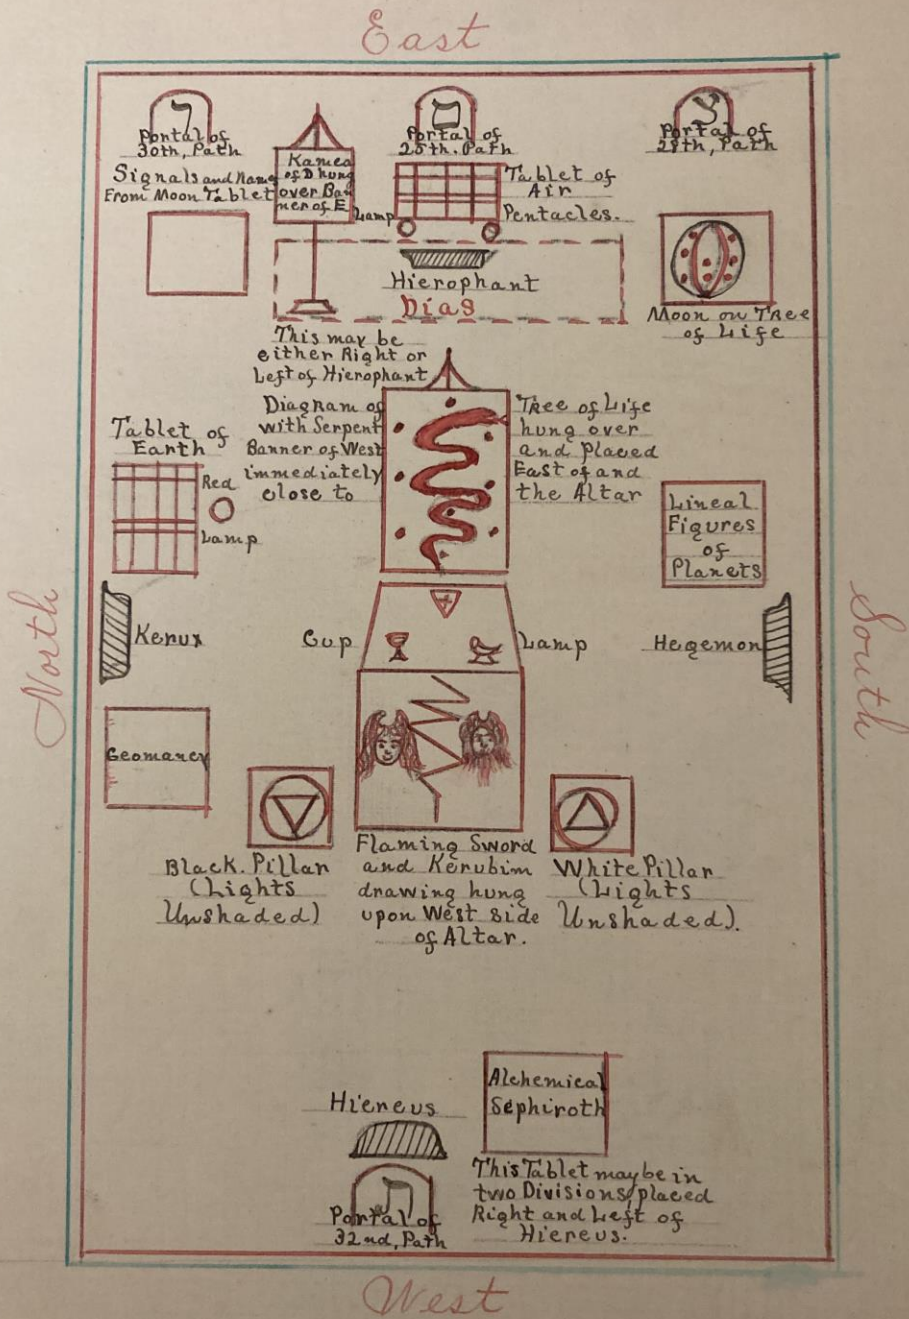 East
ר
Portal of
30th, Path
ס
Portal of
25th. Path
צ
Portal of
28th, Path
Signals and Name
From Moon Tablet
Kamea
of D hung
over Ban
ner of E
Lamp
Tablet of
Air
Pentacles.
Hierophant
Dias
Moon on Tree
of Life
This may be
either Right or
Left of Hierophant
Diagram of
with Serpent
Banner of West
immediately
close to
Tree of Life
hung over
and placed
East of and
the Altar
Tablet of
Earth
Red
Lamp
Lineal
Figures
of
Planets
North
South
Kerux
Cup
Lamp
Hegemon
Geomancy
Black. Pillar
(Lights
Unshaded)
Flaming Sword
and Kerubim
drawing hung
upon West side
of Altar.
White Pillar
(Lights
Unshaded).
Hiereus
Alchemical
Sephiroth
ת
Portal of
32nd, Path
This Tablet may be in
two Divisions, placed
Right and Left of
Hiereus.
West